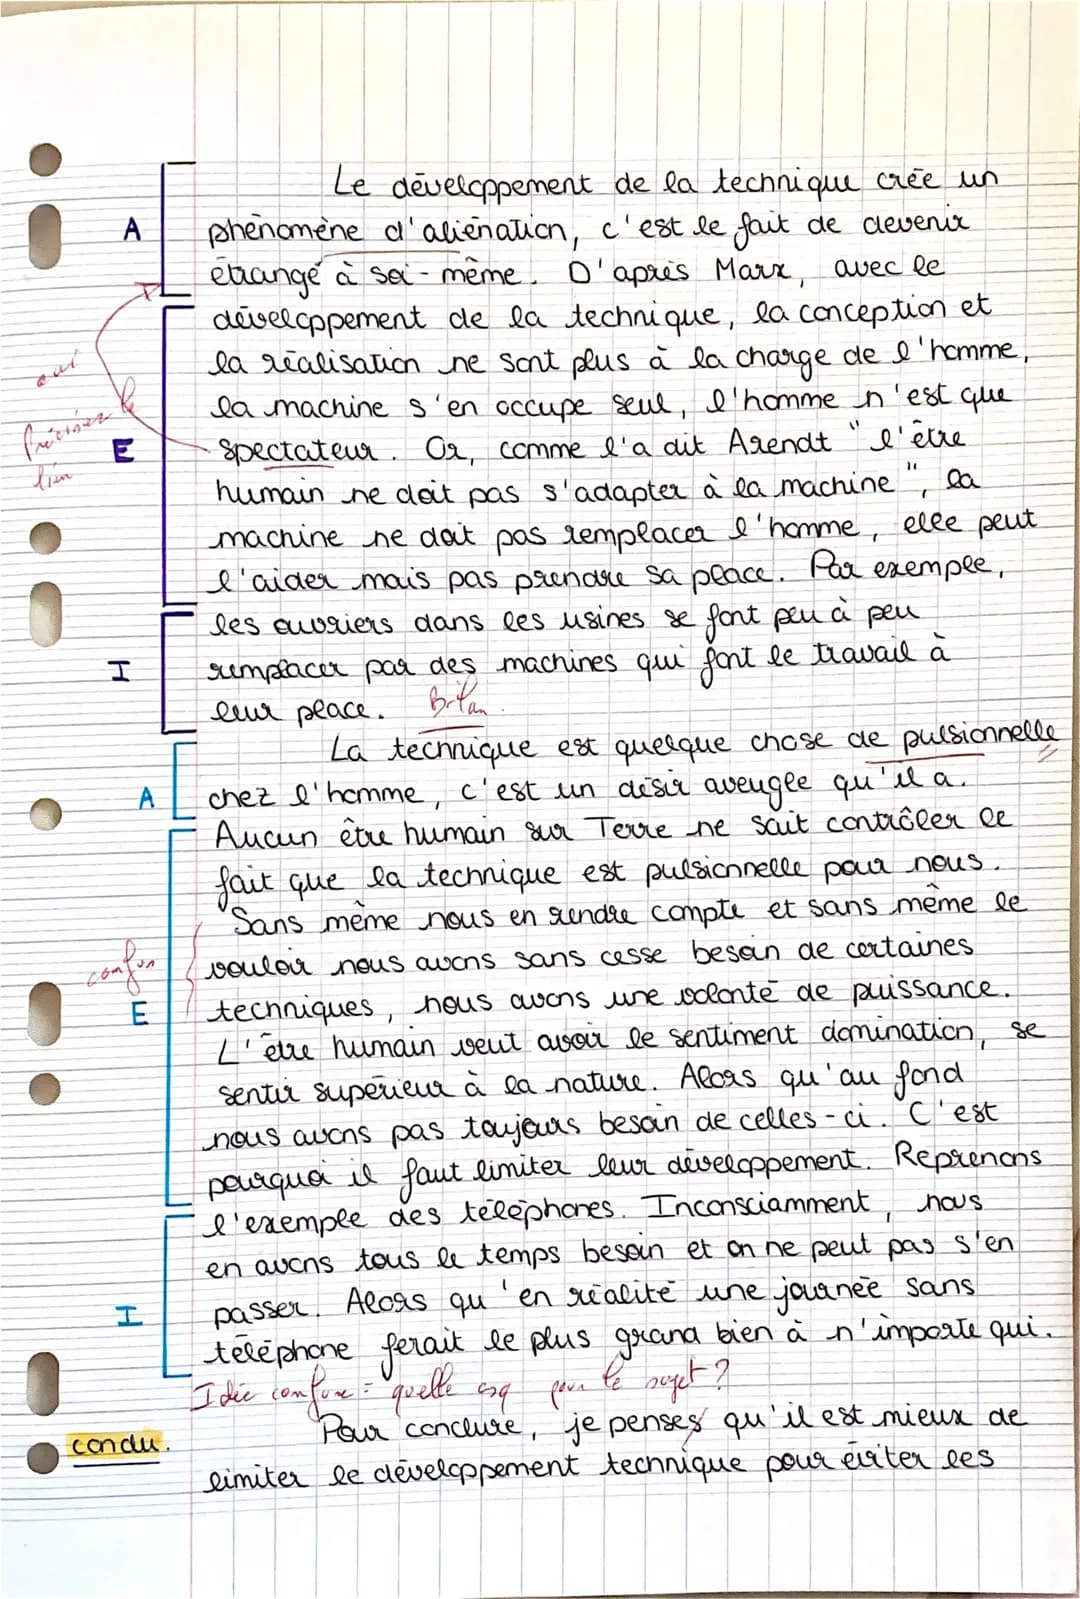 Le développement de la technique crée un
A phénomène d'aliénation, c'est le fait de devenir
étrangé à soi-même. D'après Marx, avec le
développement de la technique, la conception et
la réalisation ne sont plus à la charge de l'homme,
oui
la machine s'en occupe seul, l'homme n'est que
Préciser le
lien
E spectateur. Or, comme l'a dit Arendt "l'être
humain ne doit pas s'adapter à la machine", la
machine ne doit pas remplacer l'homme, elle peut
l'aider mais pas prendre sa place. Par exemple,
les ouvriers dans les usines se font peu à peu
I remplacer par des machines qui font le travail à
leur place. Bilan.
La technique est quelque chose de pulsionnelle
A chez l'homme, c'est un désir aveugle qu'il a.
Aucun être humain sur Terre ne sait contrôler le
fait que la technique est pulsionnelle pour nous.
Sans même nous en rendre compte et sans même le
confus
vouloir nous avons sans cesse besoin de certaines
E techniques, nous avons une volonté de puissance.
L'être humain veut avoir le sentiment domination, se
sentir supérieur à la nature. Alors qu'au fond
nous avons pas toujours besoin de celles-ci. C'est
pourquoi il faut limiter leur développement. Reprenons
l'exemple des téléphones. Inconsciamment, nous
en avons tous le temps besoin et on ne peut pas s'en
I passer. Alors qu'en réalité une journée sans
téléphone ferait le plus grand bien à n'importe qui.
Idée confuse = quelle csq pour le sujet ?
Pour conclure, je penses qu'il est mieux de
conclu.
limiter le développement technique pour éviter les